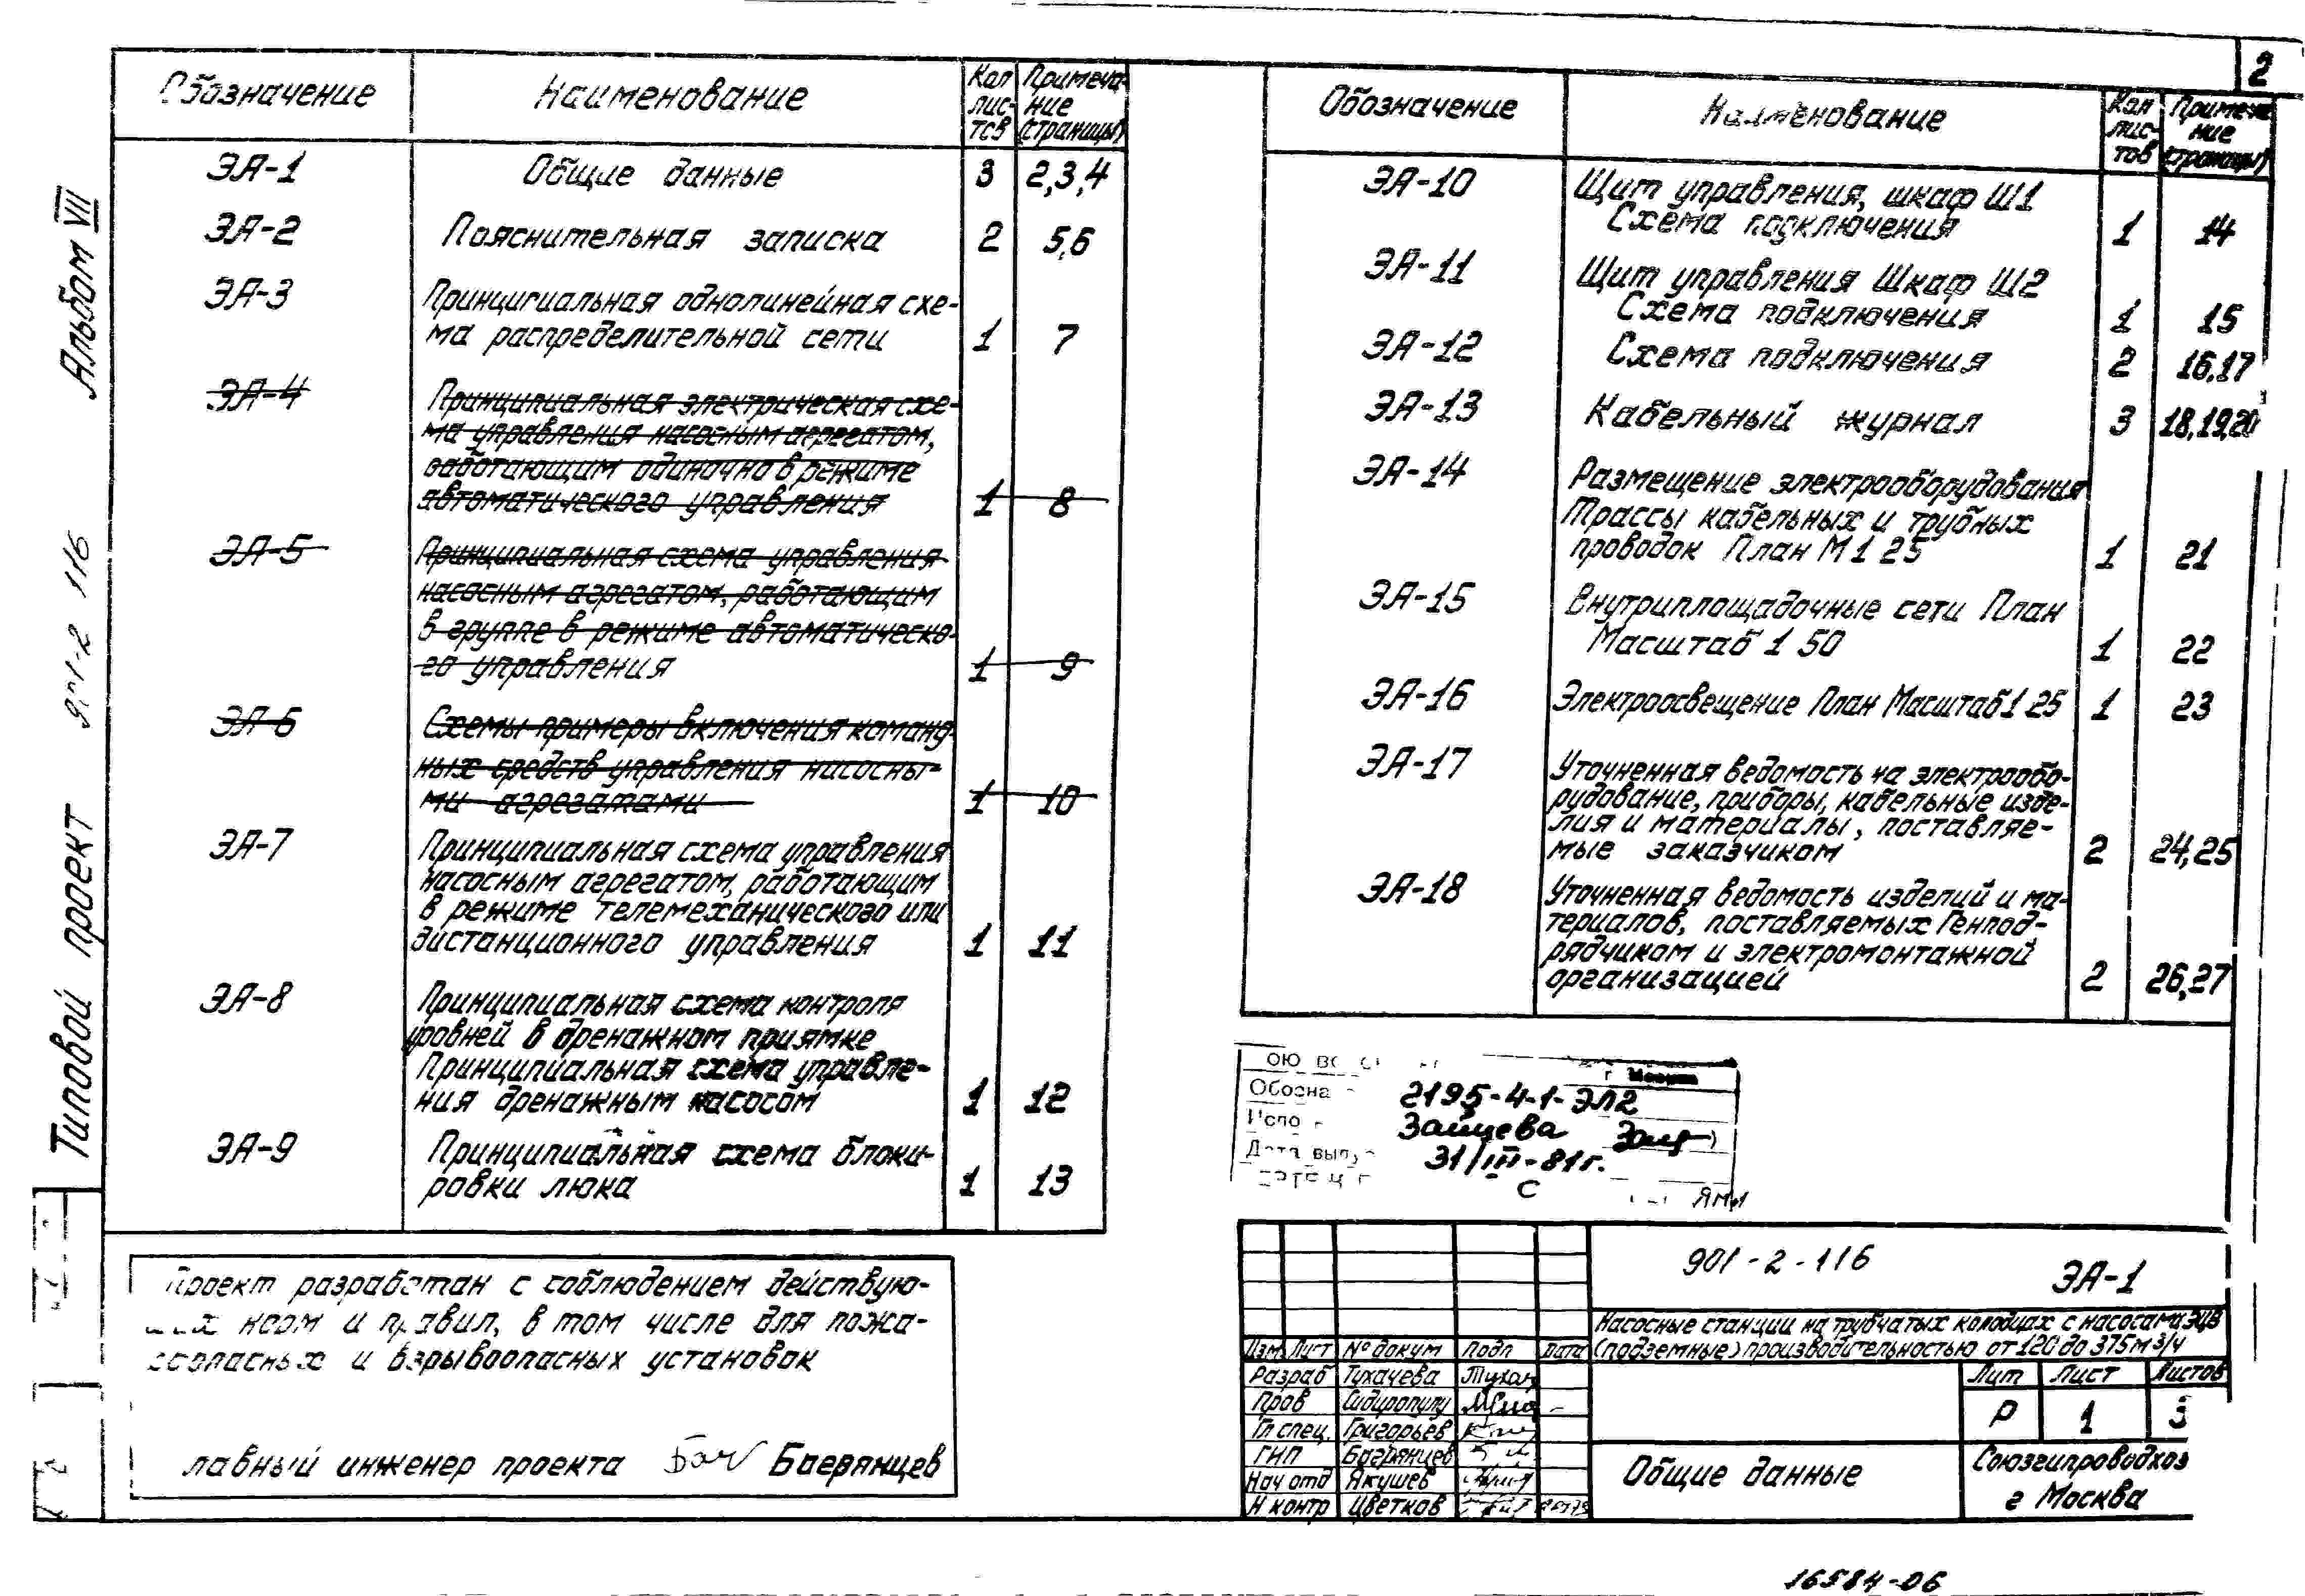 2
Типовой проект 901-2 116 Альбом VII
Обозначение Наименование Кол лис- тов Примеча- ние (страницы)
ЭА-1 Общие данные 3 2,3,4
ЭА-2 Пояснительная записка 2 5,6
ЭА-3 Принципиальная однолинейная схе-
ма распределительной сети 1 7
ЭА-4 Принципиальная электрическая схе-
ма управления насосным агрегатом,
работающим одиночно в режиме
автоматического управления 1 8
ЭА-5 Принципиальная схема управления
насосным агрегатом, работающим
в группе в режиме автоматическо-
го управления 1 9
ЭА-6 Схемы примеры включения команд-
ных средств управления насосны-
ми агрегатами 1 10
ЭА-7 Принципиальная схема управления
насосным агрегатом, работающим
в режиме телемеханического или
дистанционного управления 1 11
ЭА-8 Принципиальная схема контроля
уровней в дренажном приямке
Принципиальная схема управле-
ния дренажным насосом 1 12
ЭА-9 Принципиальная схема блоки-
ровки люка 1 13
Обозначение Наименование Кол лис- тов Примеча- ние (страницы)
ЭА-10 Щит управления, шкаф Ш1
Схема подключения 1 14
ЭА-11 Щит управления Шкаф Ш2
Схема подключения 1 15
ЭА-12 Схема подключения 2 16,17
ЭА-13 Кабельный журнал 3 18,19,20
ЭА-14 Размещение электрооборудования
Трассы кабельных и трубных
проводок План М 1 25 1 21
ЭА-15 Внутриплощадочные сети План
Масштаб 1 50 1 22
ЭА-16 Электроосвещение План Масштаб 1 25 1 23
ЭА-17 Уточненная ведомость на электрообо-
рудование, приборы, кабельные изде-
лия и материалы, поставляе-
мые заказчиком 2 24,25
ЭА-18 Уточненная ведомость изделий и ма-
териалов, поставляемых Генпод-
рядчиком и электромонтажной
организацией 2 26,27
Проект разработан с соблюдением действую-
щих норм и правил, в том числе для пожа-
роопасных и взрывоопасных установок
лавный инженер проекта Багрянцев
Обозна 2195-4-1-ЭЛ2
Испо Зайцева
Дата вып 31/III-81г.
901-2-116 ЭА-1
Насосные станции на трубчатых колодцах с насосами ЭЦВ
(подземные) производительностью от 120 до 375 м3/ч
Изм Лист № докум Подп Дата
Разраб Тухачева
Пров Сидиропулу
Гл спец. Григорьев
ГИП Багрянцев
Нач отд Якушев
Н контр Цветков
Лит Лист Листов
Р 1 3
Общие данные
Союзгипроводхоз
г Москва
16584-06